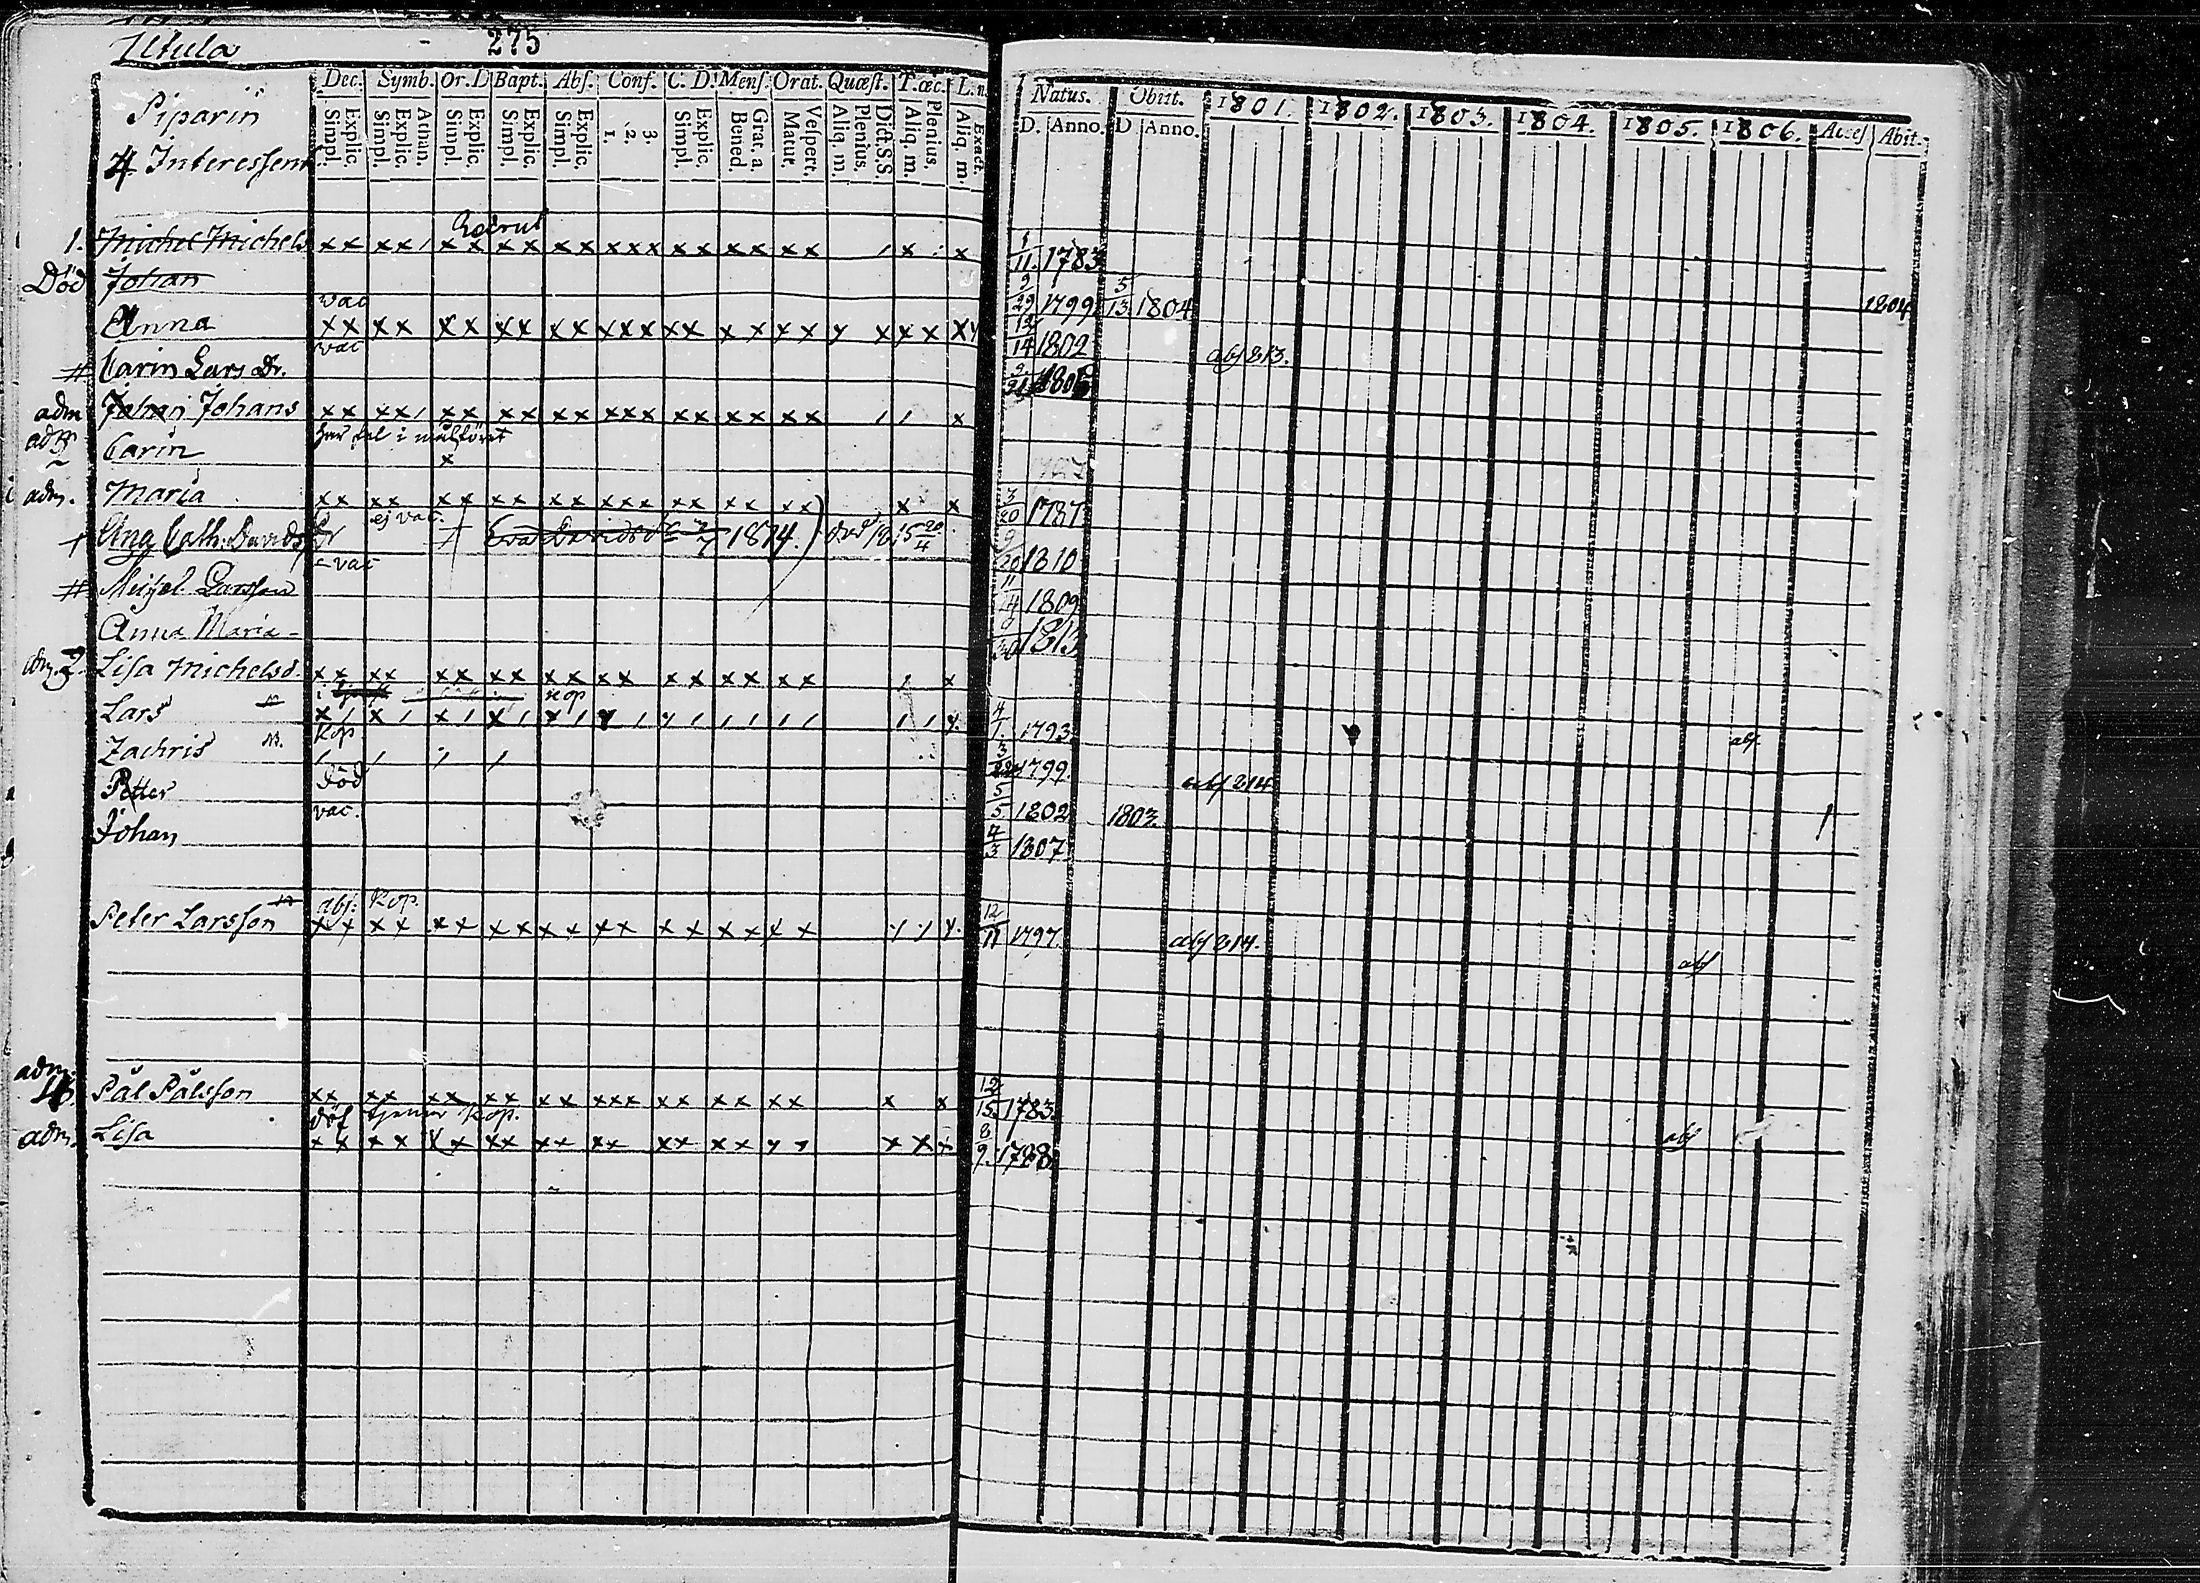 Utula 275
Dec. Symb. Or. D Bapt. Abs. Conf. C. D. Mens. Orat. Quæst. T. œc. Natus. Obiit. 1801. 1802. 1803. 1804. 1805. 1806. Acces Abit.
Explic. Simpl. Athan. Explic. Simpl. Explic. Simpl. Explic. Simpl. Explic. Simpl. 3. 2. 1. Explic. Simpl. Grat. a. Bened. Vespert. Matut. Dict. S.S. Plenius. Aliq. m. Plenius. Aliq. m. Exact. Aliq. m. D. Anno. D Anno.
Piparin
4 Interessent
1. Michel Michels xx xx/ xx xx xx xxx xx xx xx / x x 1/11 1783
Död Johan 9/29 1799 5/13 1804 1804
vac
Anna xx xx xx xx xx xxx xx xx xx y x x x xy 12/14 1802 abs 813.
vac
# Carin Lars Dr. 9/21 1806
adm Johan Johans xx xx/ xx xx xx xxx xx xx xx / / x
har fel i målföret
adm Carin x
adm. Maria xx xx xx xx xx xxx xx xx xx x x 3/20 1787
ej vac.
† Ang Cath: Davids Dr Eva Davidsd 1814. död 1815 20/4 9/20 1810
vac
# Michel Larsson 11/14 1809
Anna Maria - 1813
adm. 3. Lisa Michelsd. xx xx xx xx xx xx xx xx xx / x
kop
Lars x/ x/ x/ x/ x/ y/ y/ // // / / y. 4/1. 1793 abs.
kop
Zachris / / / / 3/22 1799. abs 814
död
Petter 5/5 1802 1803. 1
vac.
Johan 4/3 1807
abs: kop.
Peter Larsson xx xx xx xx xx xx xx xx xx y y y. 12/11 1797. abs 814.
abs
adm. 4. Pål Pålsson xx xx xx xx xx xxx xx xx xx x x 12/15 1783
döf tjenar kop.
adm. Lisa xx xx xx xx xx xx xx xx yx x x x 8/9. 1788. abs